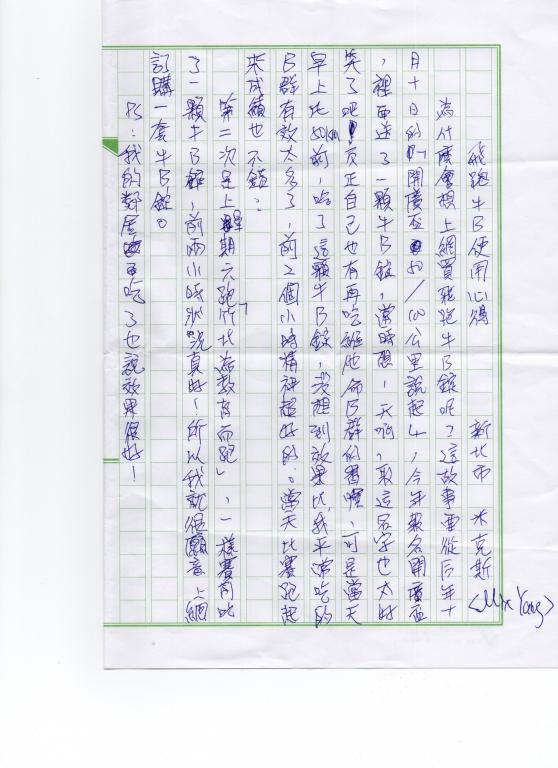 飛跑牛B使用心得 新北市 米克斯
<Mix Yang>
為什麼會想上網買飛跑牛B錠呢？這故事要從后年十
月十日的「開廣盃50/100公里說起」，今年報名開廣盃
，裡面送了一顆牛B錠，當時想，天啊，取這名字也太好
笑了吧！反正自己也有再吃維他命B群的習慣，可是當天
早上比50km前，吃了這顆牛B錠，沒想到效果比我平常吃的
B群有效太多了，前2個小時精神超好的。當天比賽跑起
來成績也不錯；
第二次是上星期六跑「竹北為教育而跑」，一樣賽前吃
了一顆牛B錠，前兩小時狀況真好！所以我就很願意上網
訂購一套牛B錠。
PS：我的鄰居吃了也說效果很好！